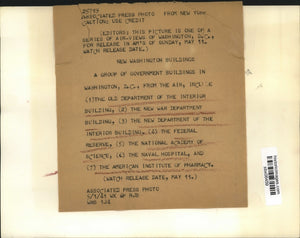 ASSOCIATED PRESS PHOTO FROM NEW YORK
CAUTION: USE CREDIT
(EDITORS: THIS PICTURE IS ONE OF A
SERIES OF AIR-VIEWS OF WASHINGTON, D.C.,
FOR RELEASE IN AM'S OF SUNDAY, MAY 11.
WATCH RELEASE DATE.)
NEW WASHINGTON BUILDINGS
A GROUP OF GOVERNMENT BUILDINGS IN
WASHINGTON, D.C., FROM THE AIR, INCLUDE
(1) THE OLD DEPARTMENT OF THE INTERIOR
BUILDING, (2) THE NEW WAR DEPARTMENT
BUILDING, (3) THE NEW DEPARTMENT OF THE
INTERIOR BUILDING, (4) THE FEDERAL
RESERVE, (5) THE NATIONAL ACADEMY OF
SCIENCE, (6) THE NAVAL HOSPITAL, AND
(7) THE AMERICAN INSTITUTE OF PHARMACY.
(WATCH RELEASE DATE, MAY 11.)
ASSOCIATED PRESS PHOTO
5/9/41